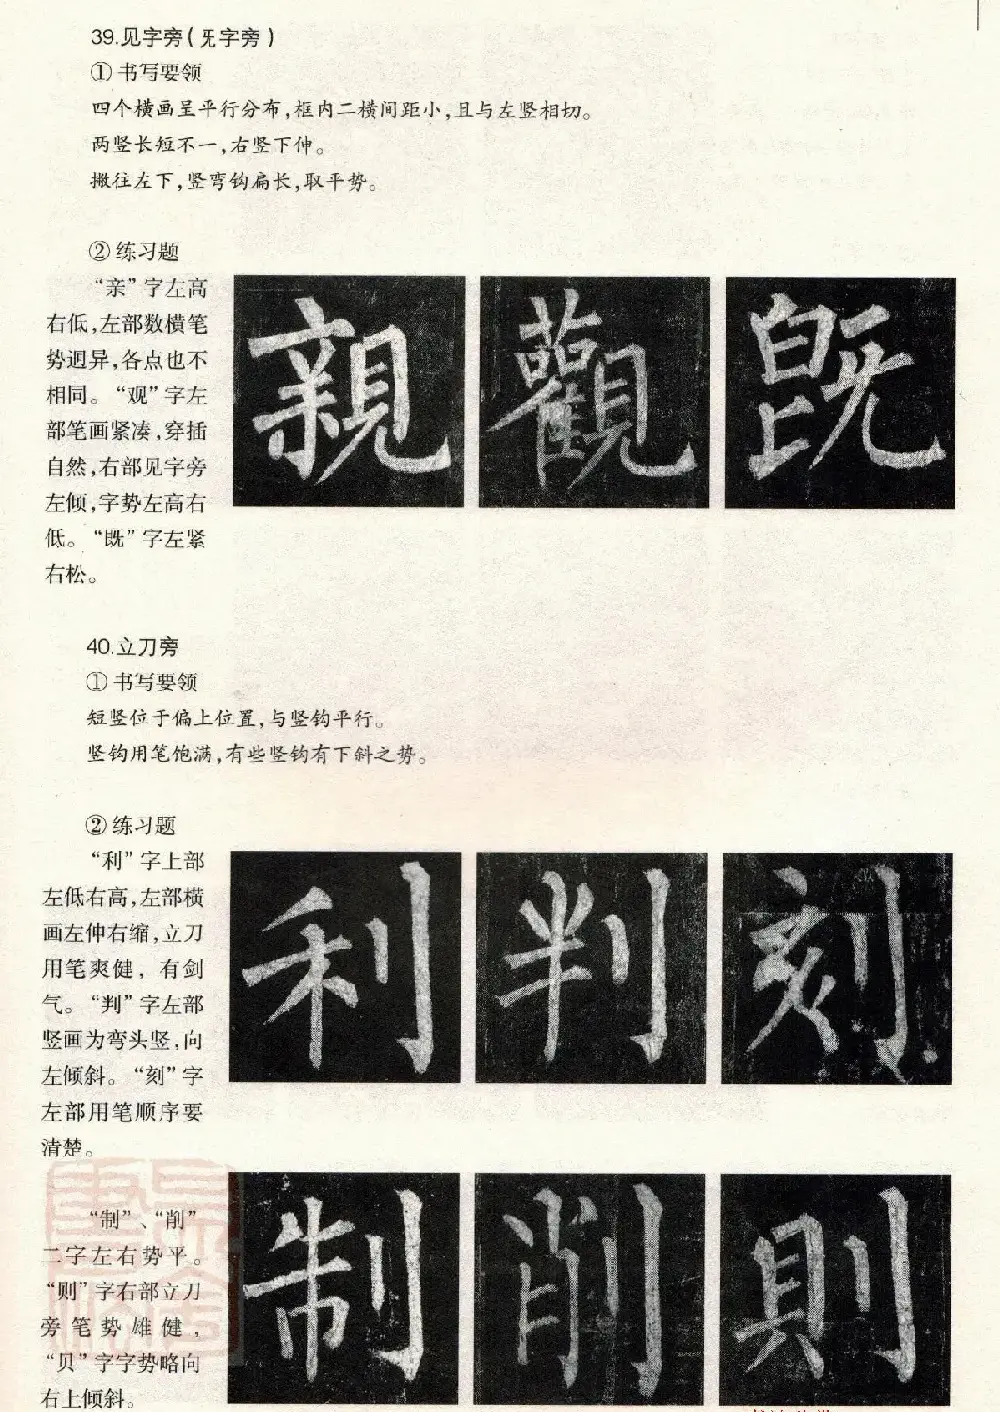 39.见字旁(旡字旁)
①书写要领
四个横画呈平行分布,框内二横间距小,且与左竖相切。
两竖长短不一,右竖下伸。
撇往左下,竖弯钩扁长,取平势。
②练习题
“亲”字左高
右低,左部数横笔
势迥异,各点也不
相同。“观”字左
部笔画紧凑,穿插
自然,右部见字旁
左倾,字势左高右
低。“既”字左紧
右松。
親 觀 既
40.立刀旁
①书写要领
短竖位于偏上位置,与竖钩平行。
竖钩用笔饱满,有些竖钩有下斜之势。
②练习题
“利”字上部
左低右高,左部横
画左伸右缩,立刀
用笔爽健,有剑
气。“判”字左部
竖画为弯头竖,向
左倾斜。“刻”字
左部用笔顺序要
清楚。
利 判 刻
“制”、“削”
二字左右势平。
“则”字右部立刀
旁笔势雄健,
“贝”字字势略向
右上倾斜。
制 削 則